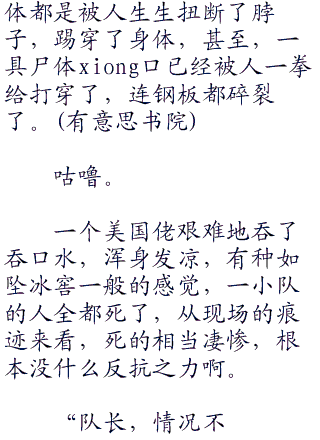 体都是被人生生扭断了脖
子，踢穿了身体，甚至，一
具尸体xiong口已经被人一拳
给打穿了，连钢板都碎裂
了。(有意思书院)
咕噜。
一个美国佬艰难地吞了
吞口水，浑身发凉，有种如
坠冰窖一般的感觉，一小队
的人全都死了，从现场的痕
迹来看，死的相当凄惨，根
本没什么反抗之力啊。
“队长，情况不